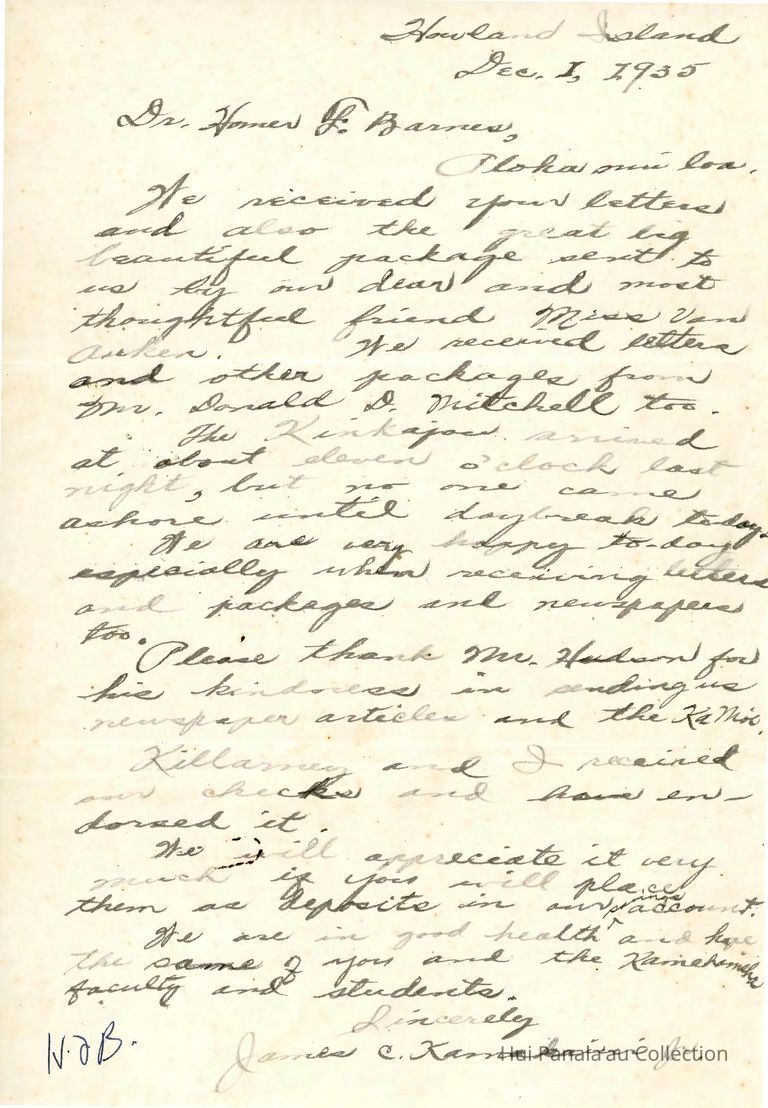 Howland Island
Dec. 1, 1935
Dr. Homer F. Barnes,
Aloha nui loa.
We received your letters
and also the great big
beautiful package sent to
us by our dear and most
thoughtful friend Miss Van
Auken. We received letters
and other packages from
Mr. Donald D. Mitchell too.
The Kinkajou arrived
at about eleven o'clock last
night, but no one came
ashore until daybreak today.
We are very happy to-day
especially when receiving letters
and packages and newspapers
too.
Please thank Mr. Hudson for
his kindness in sending us
newspaper articles and the Ka Moi.
Killarney and I received
our checks and have en-
dorsed it.
We will appreciate it very
much if you will place
them as deposits in our savings account.
We are in good health and hope
the same of you and the Kamehameha
faculty and students.
Sincerely
James C.
Hui Panalāʻau Collection
H.F.B.